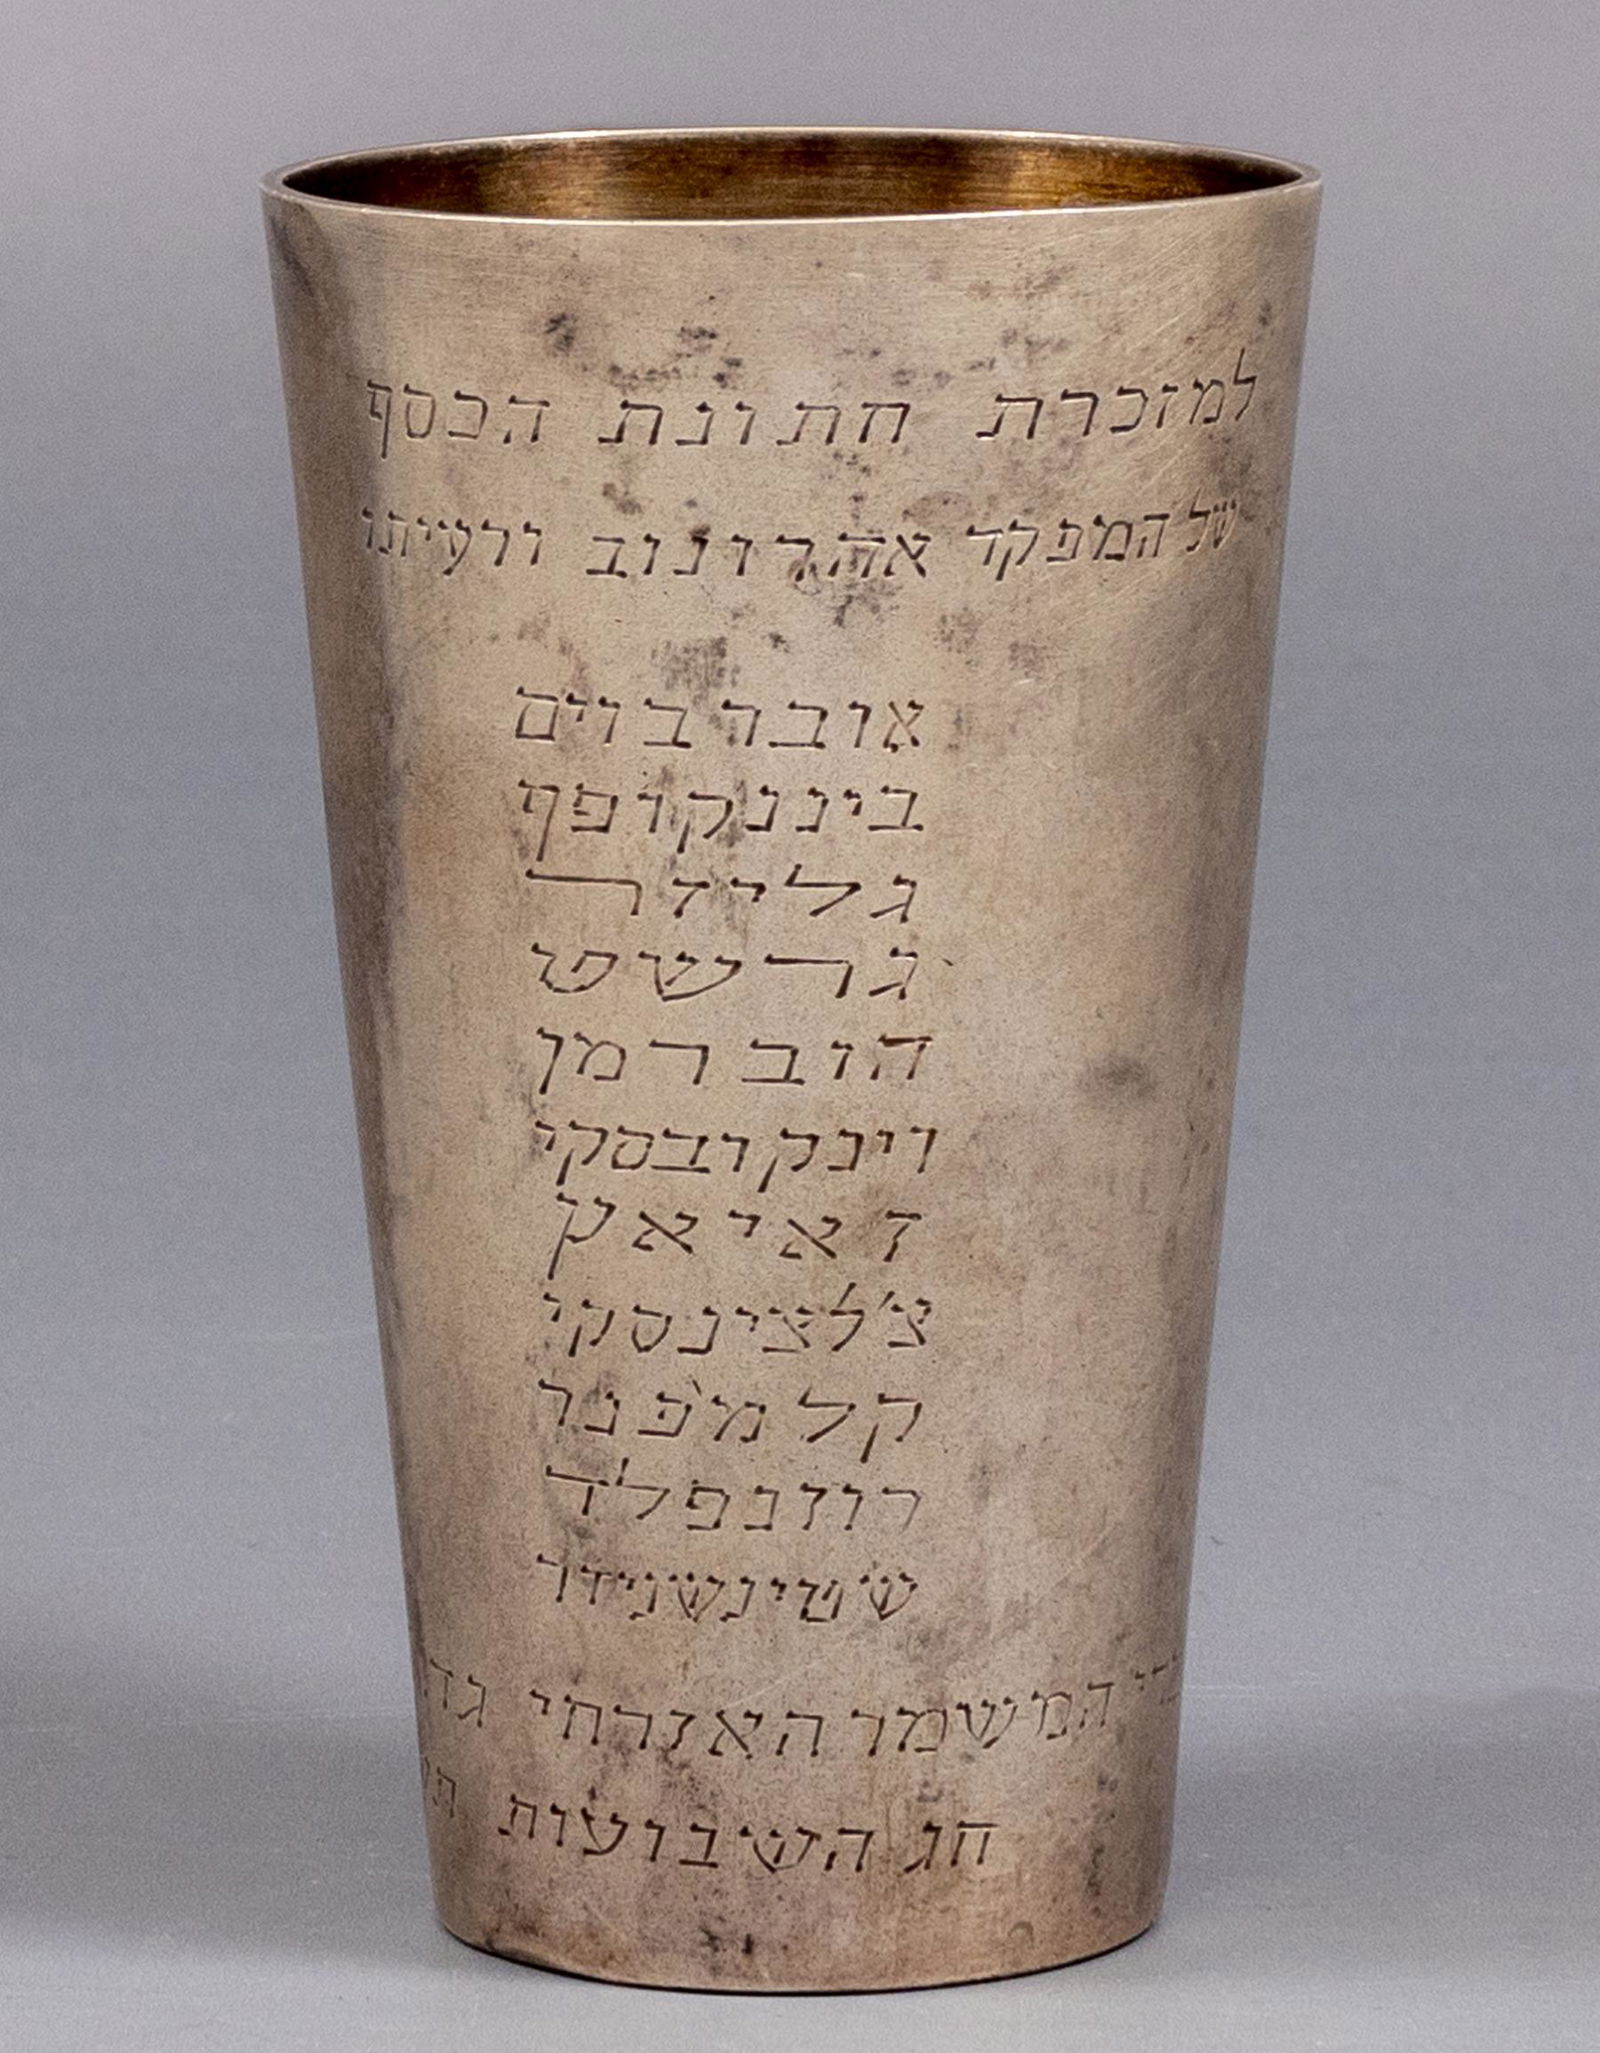 למזכרת חתונת הכסף
של המפקד אהרונוב ורעיתו
אוברבוים
ביננקופף
גליזר
גרשט
הוברמן
וינקובסקי
זאיאץ
צ'לצינסקי
קלמפנר
רוזנפלד
שטינשנידר
המשמר האזרחי
חג השבועות